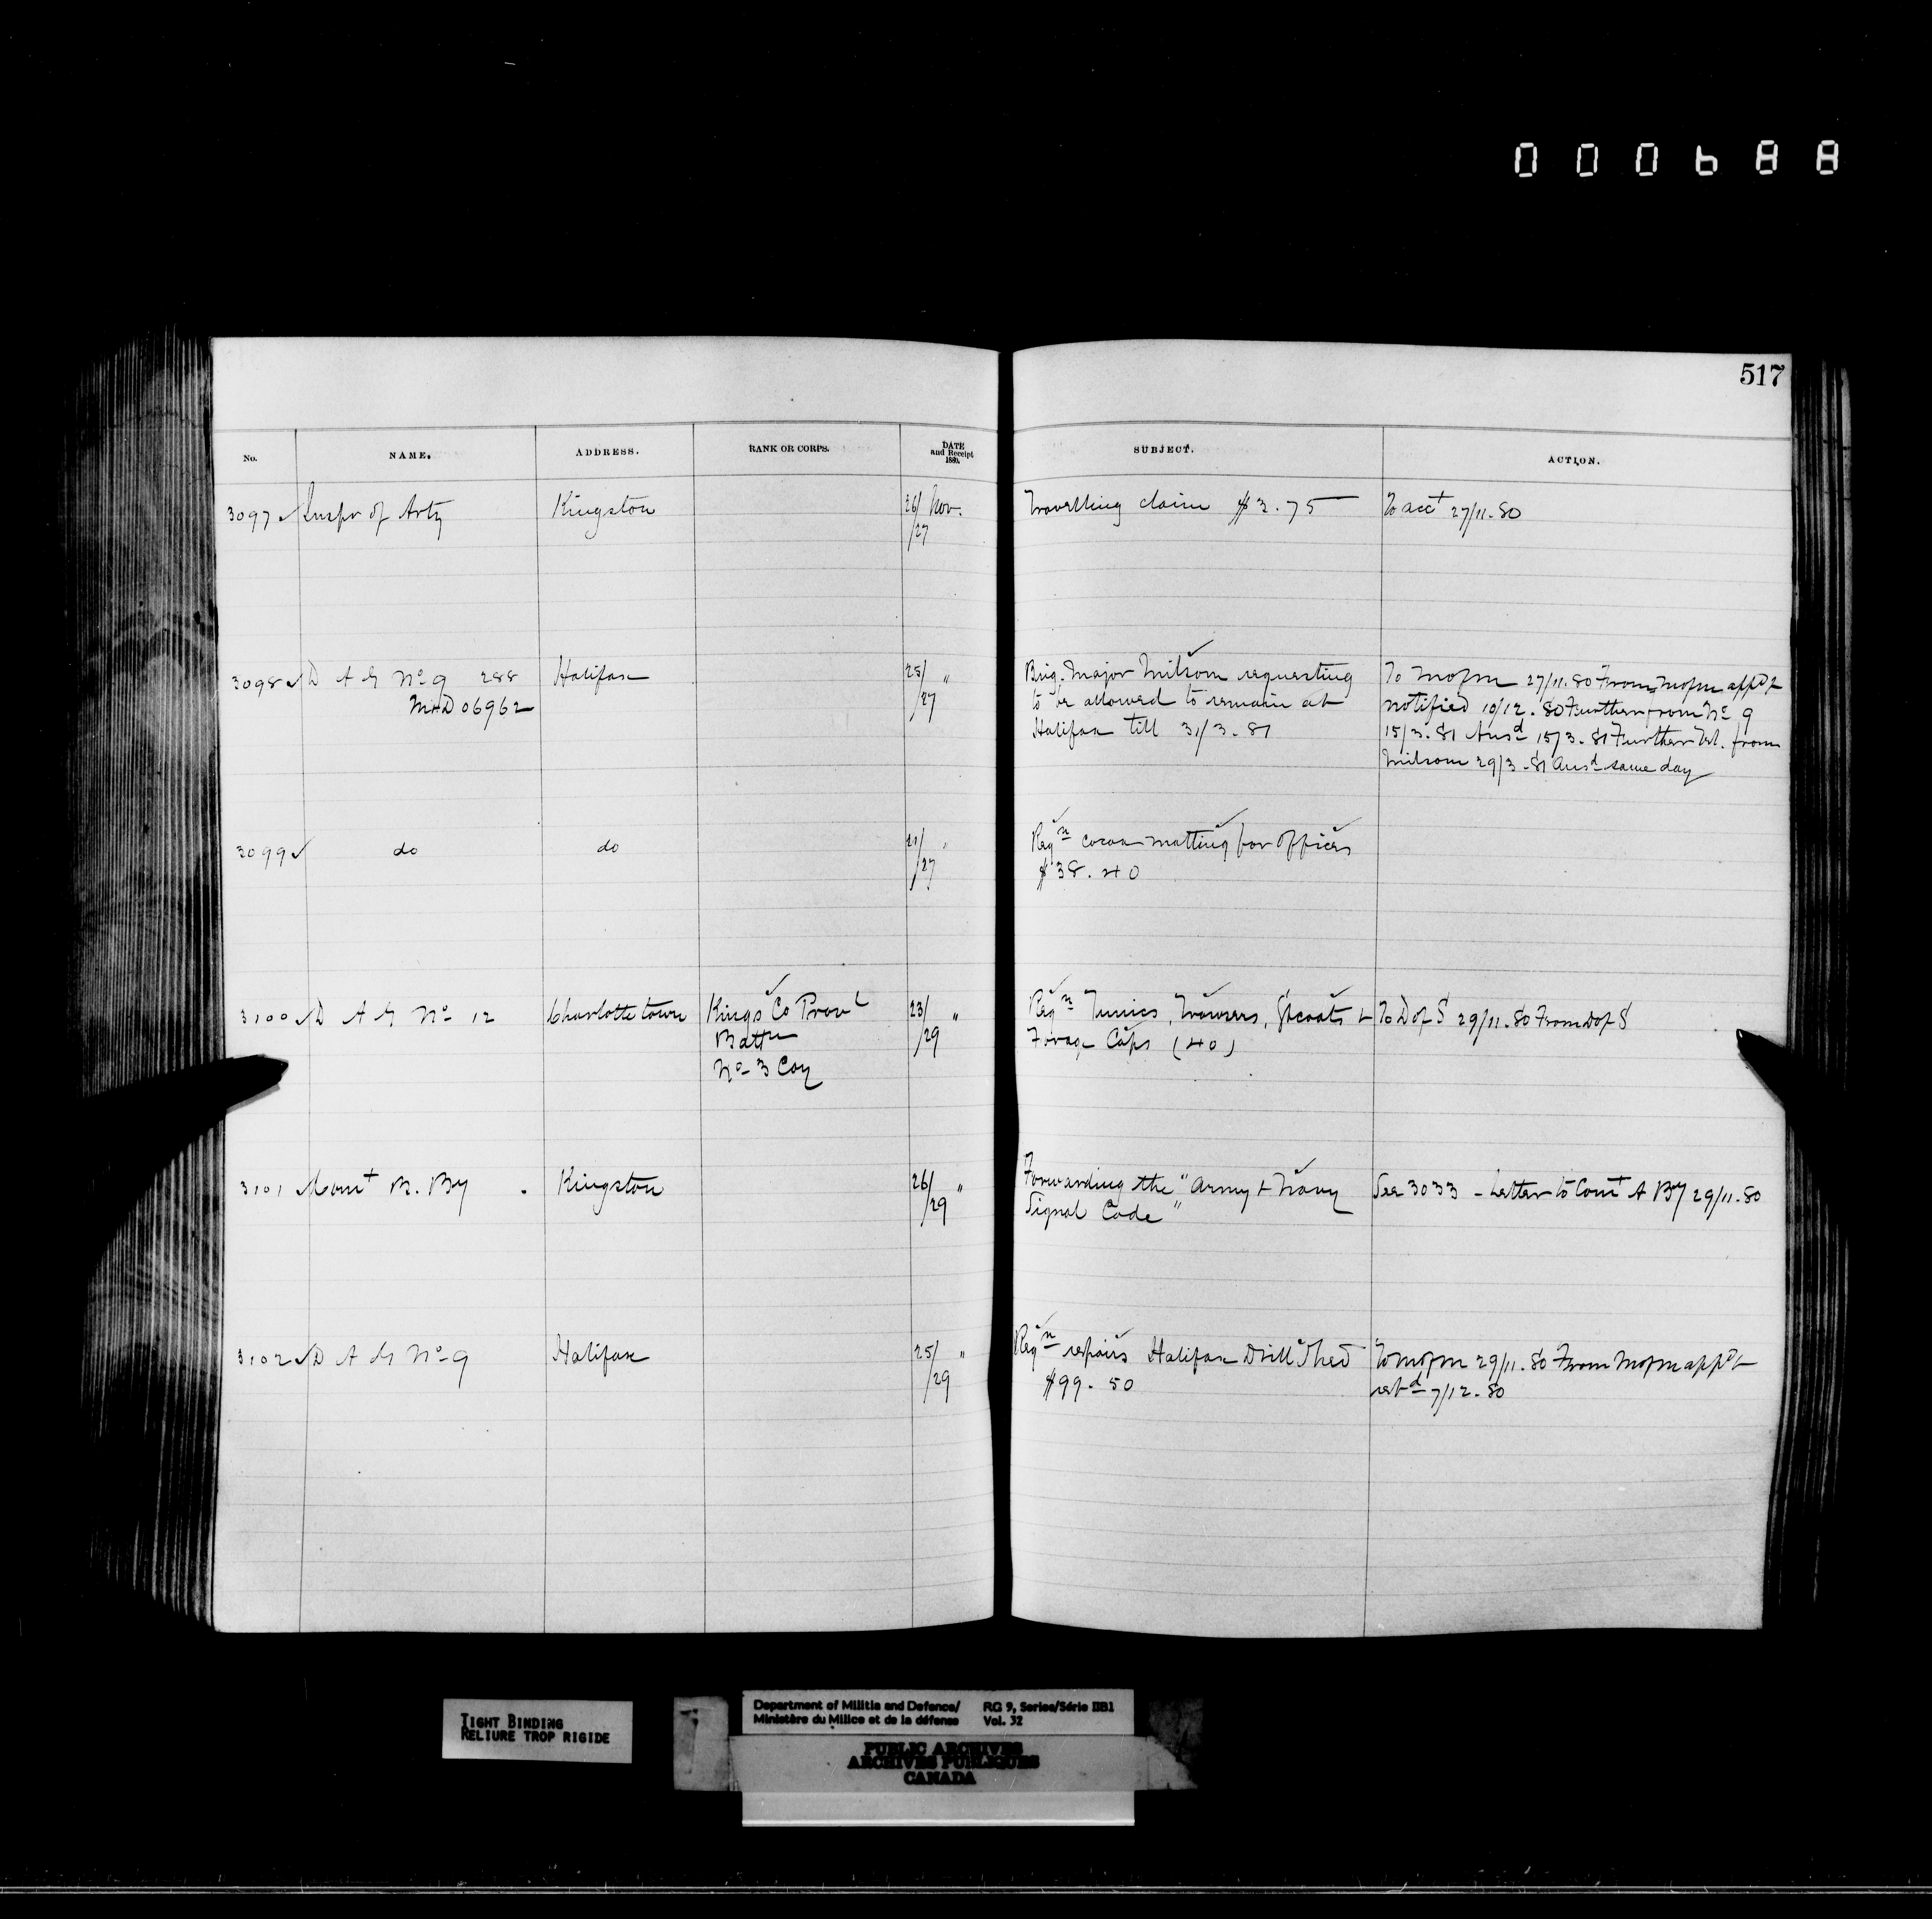 000688
517
No. NAME. ADDRESS. RANK OR CORPS. DATE and Receipt 1880. SUBJECT. ACTION.
3097 Inspr of Arty Kingston 26/ Nov. /27 Travelling claim $3.75 To acct 27/11.80
3098 D A G No 9 288 Halifax 25/ " /27 Brig. Major Milsom requesting To MofM 27/11.80 From MofM appd &
M&D 06962 to be allowed to remain at notified 10/12.80 Further from No 9
Halifax till 31/3.81 15/3.81 Ansd 15/3.81 Further Tel. from
Milsom 29/3.81 Ansd same day
3099 do do 21/ " /27 Reqn cocoa matting for offices
$38.40
3100 D A G No 12 Charlottetown Kings Co Provl 23/ " /29 Reqn Tunics, Trowsers, Gtcoats & To D of S 29/11.80 From D of S
Battn Forage Caps (40)
No 3 Coy
3101 Comt B. By Kingston 26/ " /29 Forwarding the "Army & Navy See 3033 - Letter to Comt A By 29/11.80
Signal Code"
3102 D A G No 9 Halifax 25/ " /29 Reqn repairs Halifax Drill Shed To MofM 29/11.80 From MofM appd &
$99.50 retd 7/12.80
TIGHT BINDING
RELIURE TROP RIGIDE
Department of Militia and Defence/ RG 9, Series/Série IIB1
Ministère du Milice et de la défense Vol. 32
PUBLIC ARCHIVES
ARCHIVES PUBLIQUES
CANADA